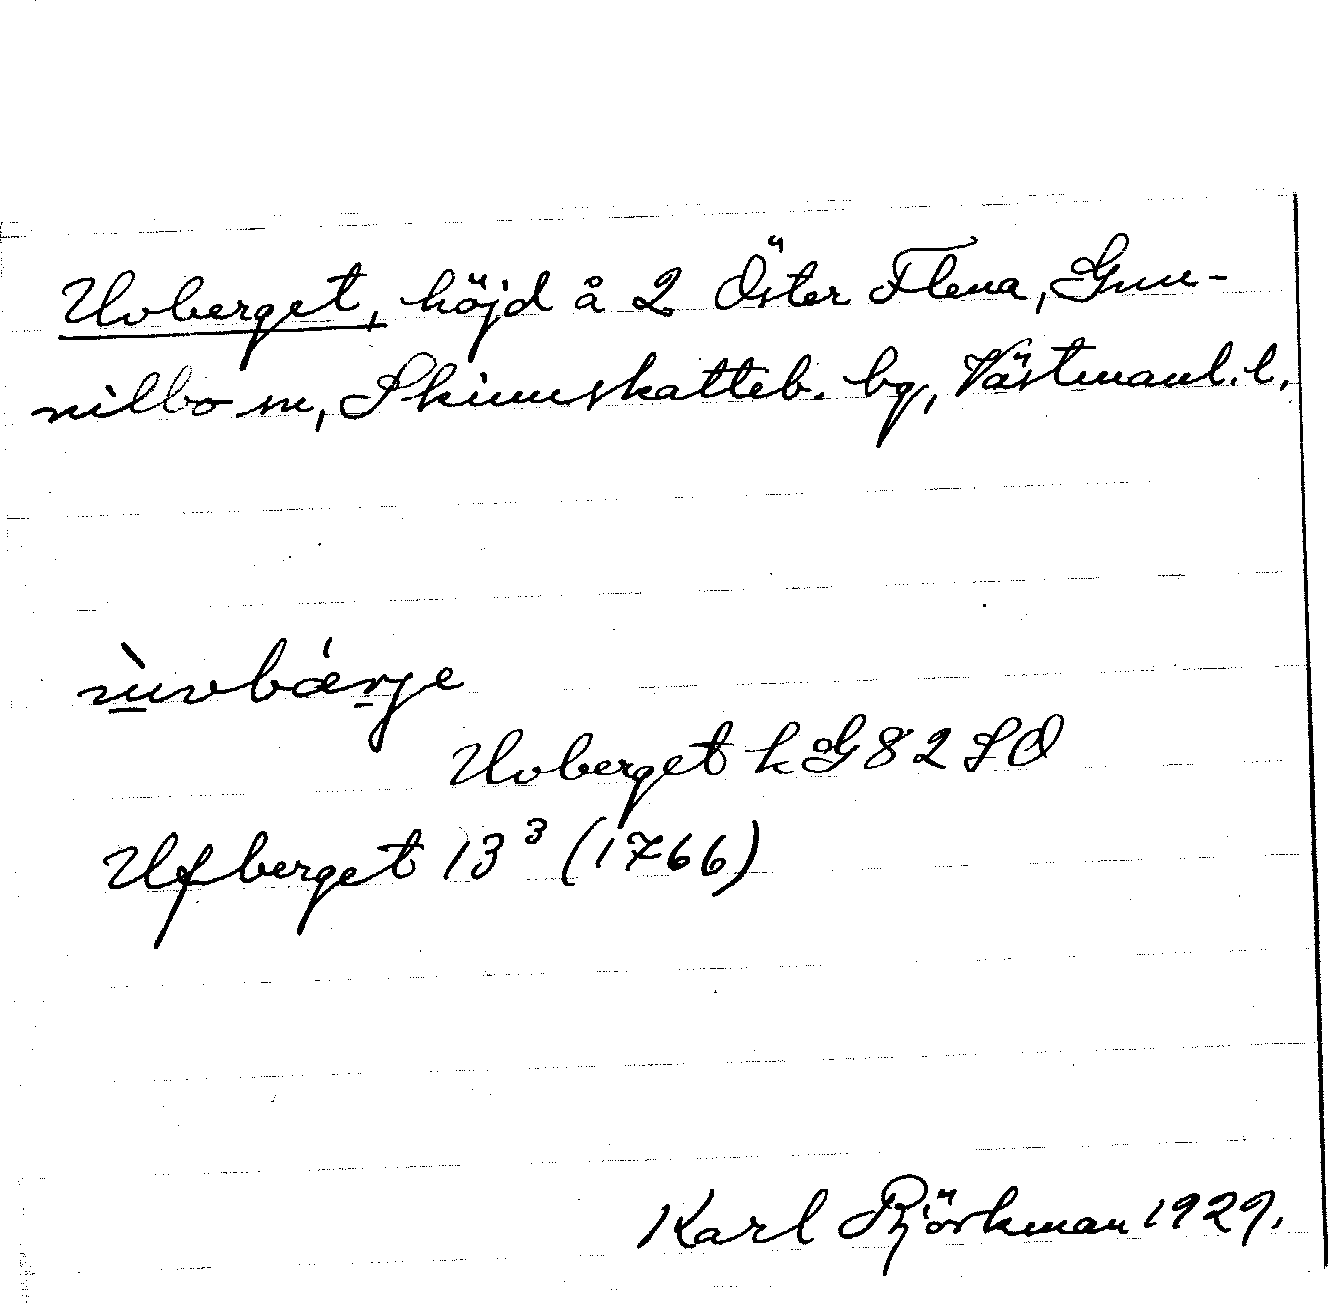 Uvberget, höjd å 2 Öster Flena, Gun-
nilbo sn, Skinnskatteb. bg, Västmanl. l.
ùvbærje
Uvberget k G 82 SO
Ufberget 13³ (1766)
Karl Björkman 1929.